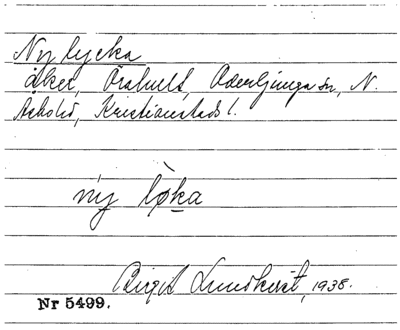 Ny lycka
åker, Örahult, Oderljunga sn, N.
Åsbohd, Kristianstads l.
ny løka
Birgit Lundkvist, 1938.
Nr 5499.